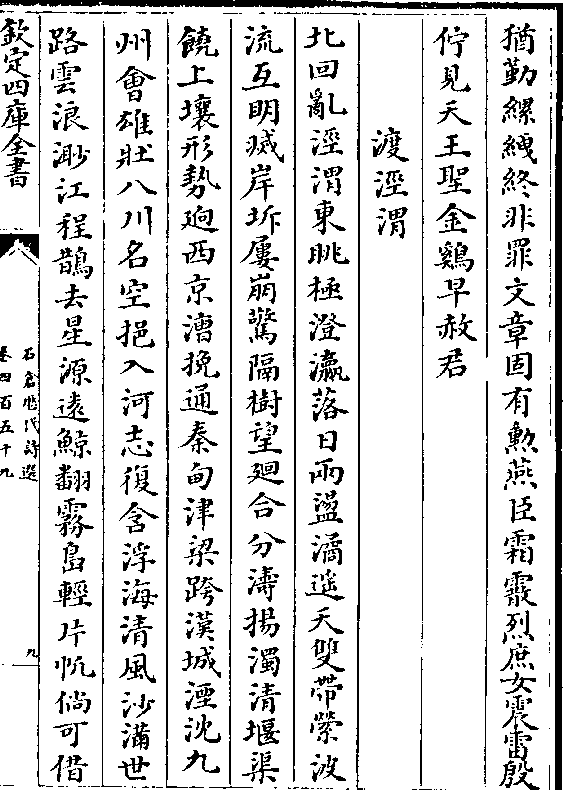 猶勤縲絏終非罪文章固有勲燕臣霜霰烈庶女震雷殷
佇見天王聖金鷄早赦君
渡涇渭
北回亂涇渭東眺極澄瀛落日兩盪潏遥天雙帶縈波
流互明滅岸坼屢崩驚隔樹望廻合分濤揚濁清堰渠
饒上壤形勢逈西京漕挽通秦甸津梁跨漢城湮沈九
州會雄壯八川名空挹入河志復含浮海清風沙滿世
路雲浪渺江程鵲去星源遠鯨翻霧島輕片帆倘可借
欽定四庫全書
石倉歴代詩選
卷四百五十九
九